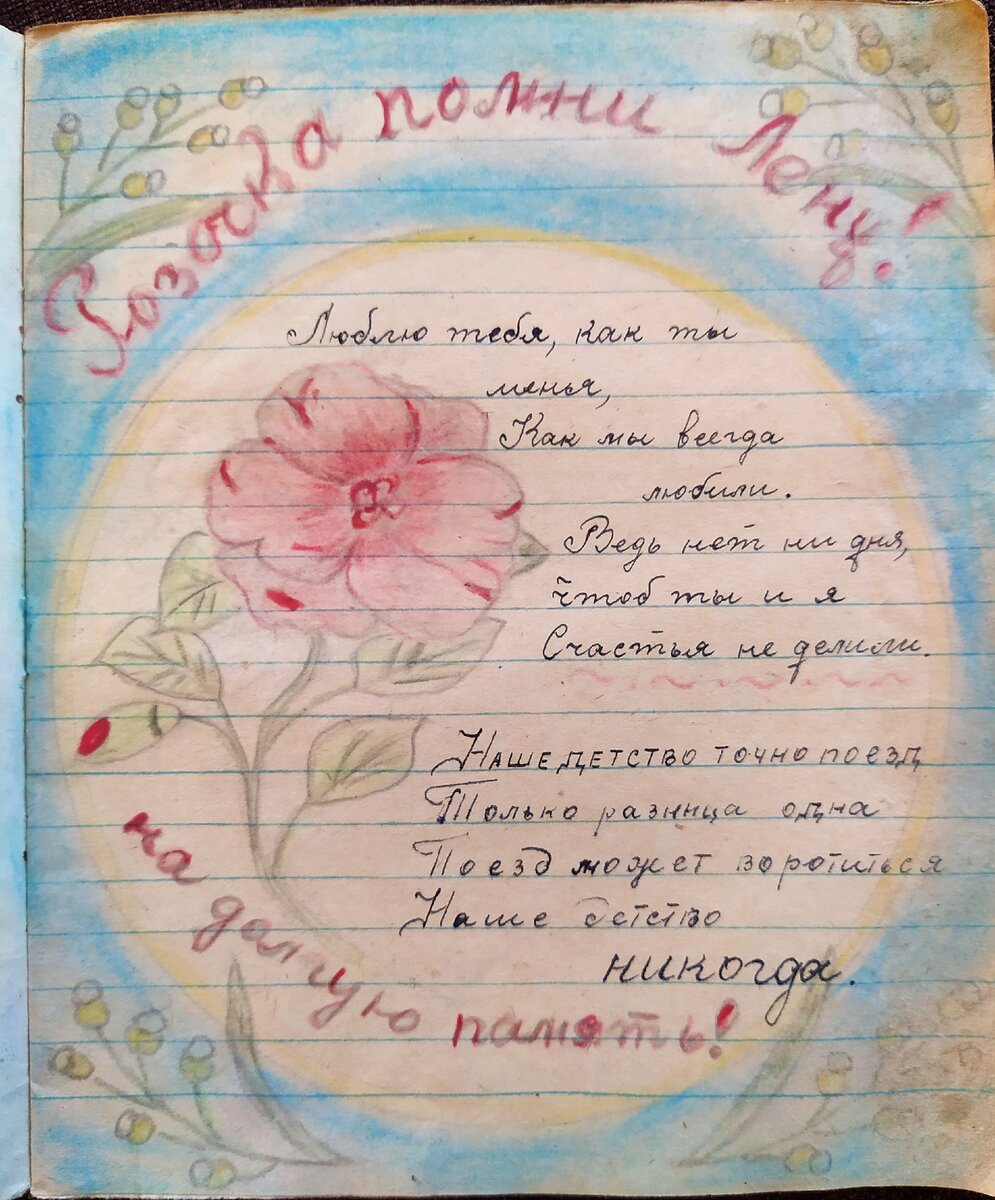 Розочка помни Лену!
Люблю тебя, как ты
менья,
Как мы всегда
любили.
Ведь нет ни дня,
Чтоб ты и я
Счастья не делили.
Наше детство точно поезд
Только разница одна
Поезд может воротиться
Наше детство
никогда.
на долгую память!